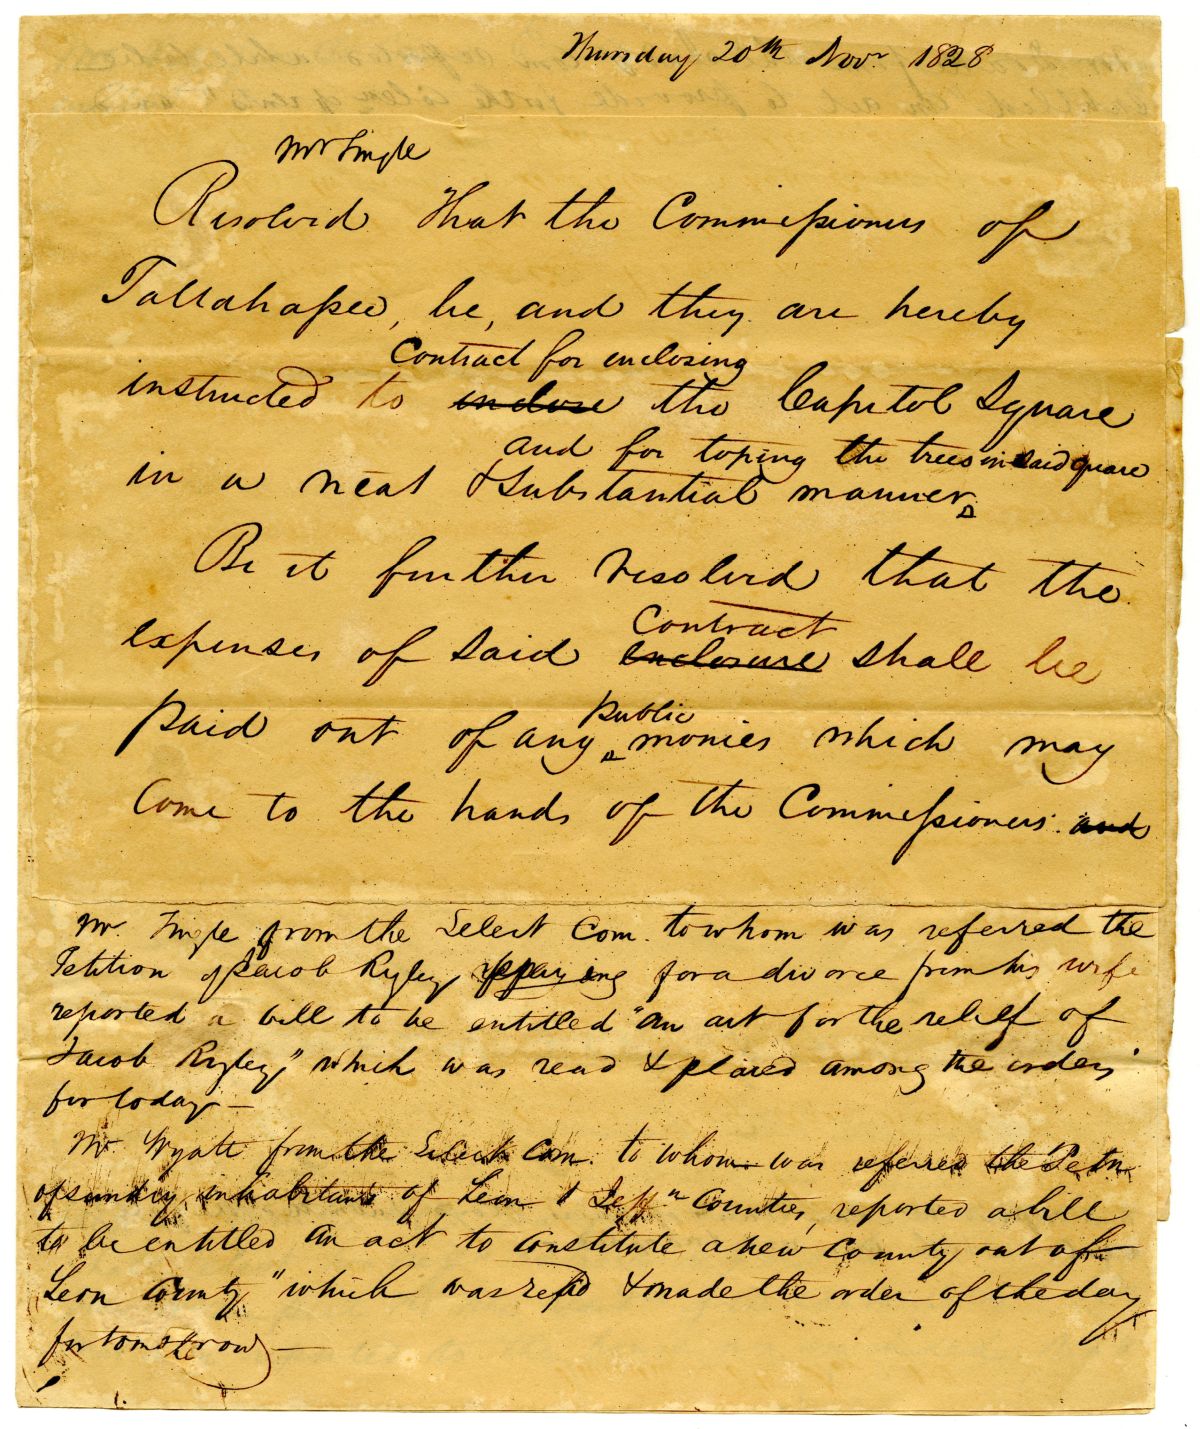 Thursday 20th Novr 1828
Mr Lingle
Resolved That the Commissioners of
Tallahassee, be, and they are hereby
Contract for enclosing
instructed to inclose the Capitol Square
and for toping the trees in said square
in a neat & substantial manner
Be it further resolved that the
Contract
expenses of said enclosure shall be
public
paid out of any monies which may
Come to the hands of the Commissioners and
Mr. from the Select Com. to whom was referred the
Petition of Jacob Rygley praying for a divorce from his wife
reported a bill to be entitled "an act for the relief of
Jacob Rygley," which was read & placed among the orders
for today —
Mr. Wyatt from the Select Com. to whom was referred the Petn
of sundry inhabitants of Leon & Jeffn Counties, reported a bill
to be entitled an act to constitute a new County out of
Leon County" which was read & made the order of the day
for tomorrow —